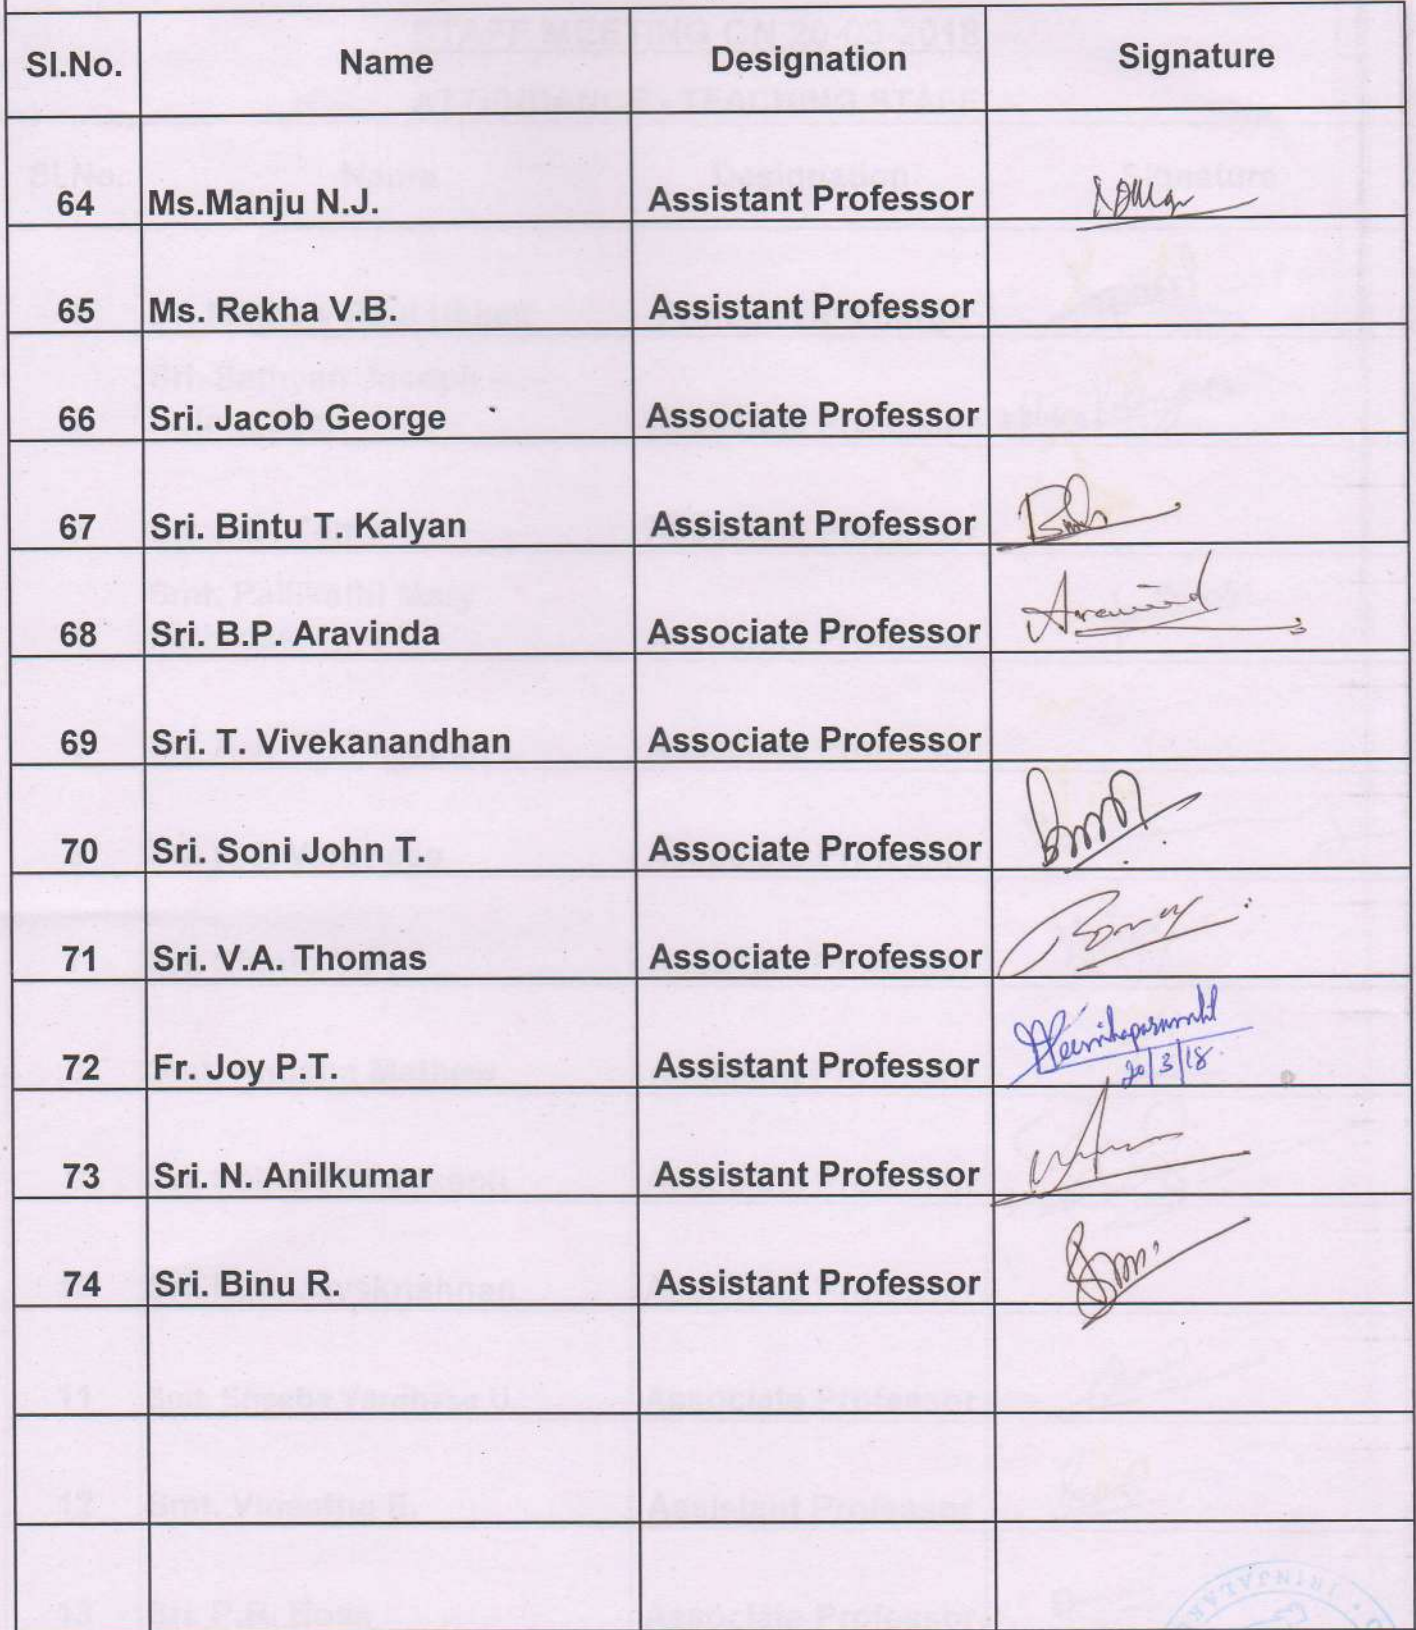 Sl.No. Name Designation Signature
64 Ms.Manju N.J. Assistant Professor
65 Ms. Rekha V.B. Assistant Professor
66 Sri. Jacob George Associate Professor
67 Sri. Bintu T. Kalyan Assistant Professor
68 Sri. B.P. Aravinda Associate Professor Aravind
69 Sri. T. Vivekanandhan Associate Professor
70 Sri. Soni John T. Associate Professor
71 Sri. V.A. Thomas Associate Professor
72 Fr. Joy P.T. Assistant Professor
20/3/18
73 Sri. N. Anilkumar Assistant Professor
74 Sri. Binu R. Assistant Professor